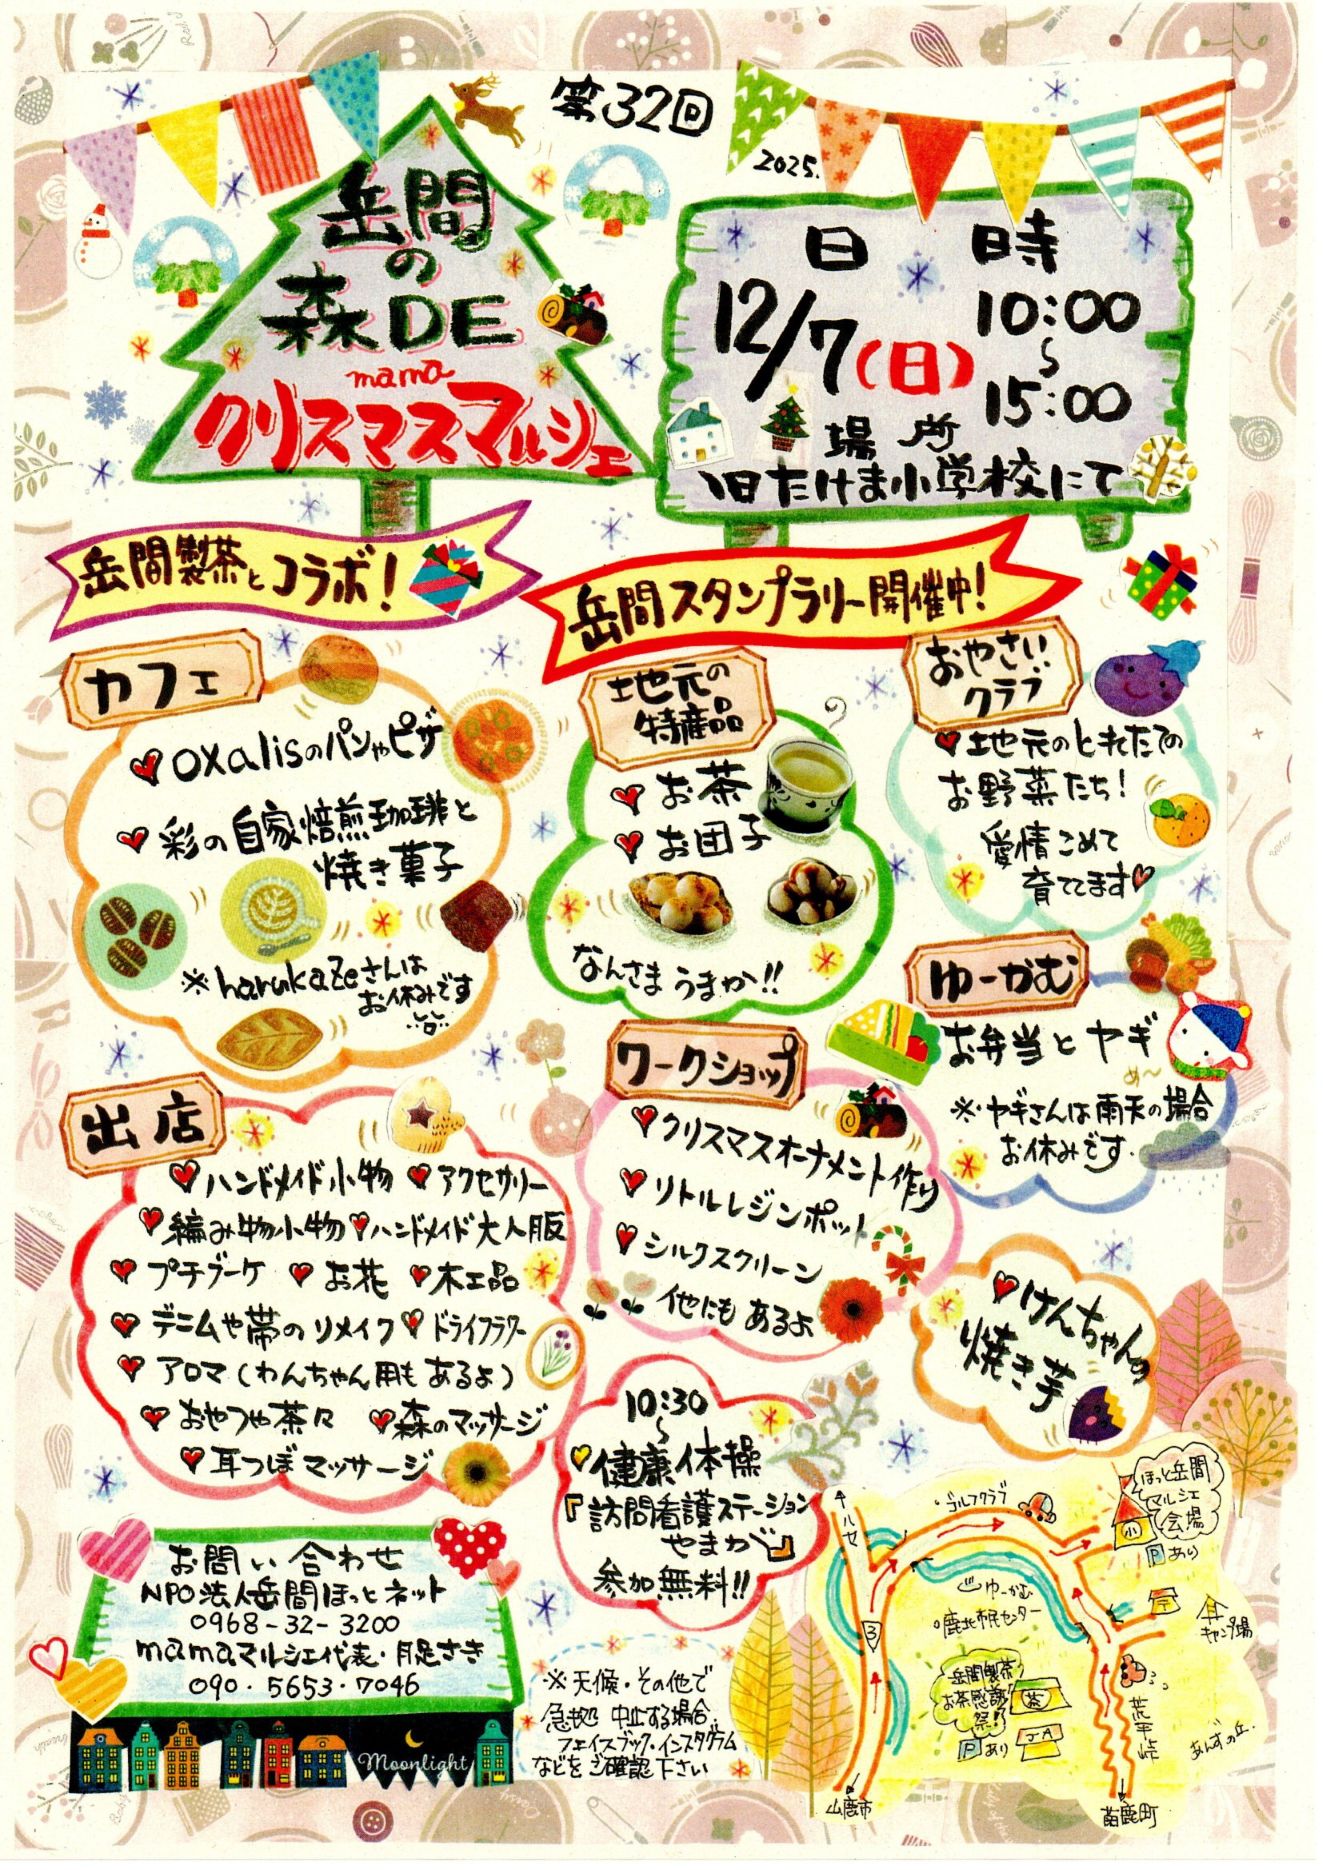 第32回
2025.
岳間
の
森DE
mama
クリスマスマルシェ
日 時
12/7(日)
10:00
〜
15:00
場所
旧たけま小学校にて
岳間製茶とコラボ!
岳間スタンプラリー開催中!
カフェ
oxalisのパンやピザ
彩の自家焙煎珈琲と
焼き菓子
※harukazeさんは
お休みです
地元の
特産品
お茶
お団子
なんさまうまか!!
おやさい
クラブ
地元のとれたての
お野菜たち!
愛情こめて
育ててます
ゆーかむ
お弁当とヤギ
め〜
※ヤギさんは雨天の場合
お休みです.
出店
ハンドメイド小物 アクセサリー
編み物小物 ハンドメイド大人服
プチブーケ お花 木工品
デニムや帯のリメイク ドライフラワー
アロマ(わんちゃん用もあるよ)
おやつや茶々 森のマッサージ
耳つぼマッサージ
ワークショップ
クリスマスオーナメント作り
リトルレジンポット
シルクスクリーン
他にもあるよ
けんちゃんの
焼き芋
10:30
〜
健康体操
『訪問看護ステーション
やまが』
参加無料!!
お問い合わせ
NPO法人岳間ほっとネット
0968-32-3200
mamaマルシェ代表・月足さき
090・5653・7046
Moonlight
※天候・その他で
急拠 中止する場合.
フェイスブック・インスタグラム
などをご確認下さい
八女
ゴルフクラブ
ほっと岳間
マルシェ
会場
小
Pあり
ゆーかむ
鹿北市民センター
〒
キャンプ場
3
岳間製茶
お茶感謝
祭!?
茶
JA
Pあり
荒平峠
あんずの丘.
山鹿市
菊鹿町